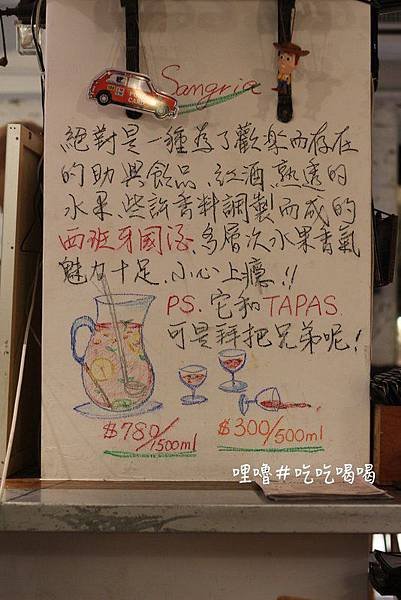 Sangria
絕對是一種為了歡樂而存在
的助興飲品、紅酒、熟透的
水果、些許香料調製而成的
西班牙國酒、多層次水果香氣
魅力十足、小心上癮!!
PS. 它和TAPAS
可是拜把兄弟呢!
$780/1500ml
$300/500ml
哩嚕#吃吃喝喝